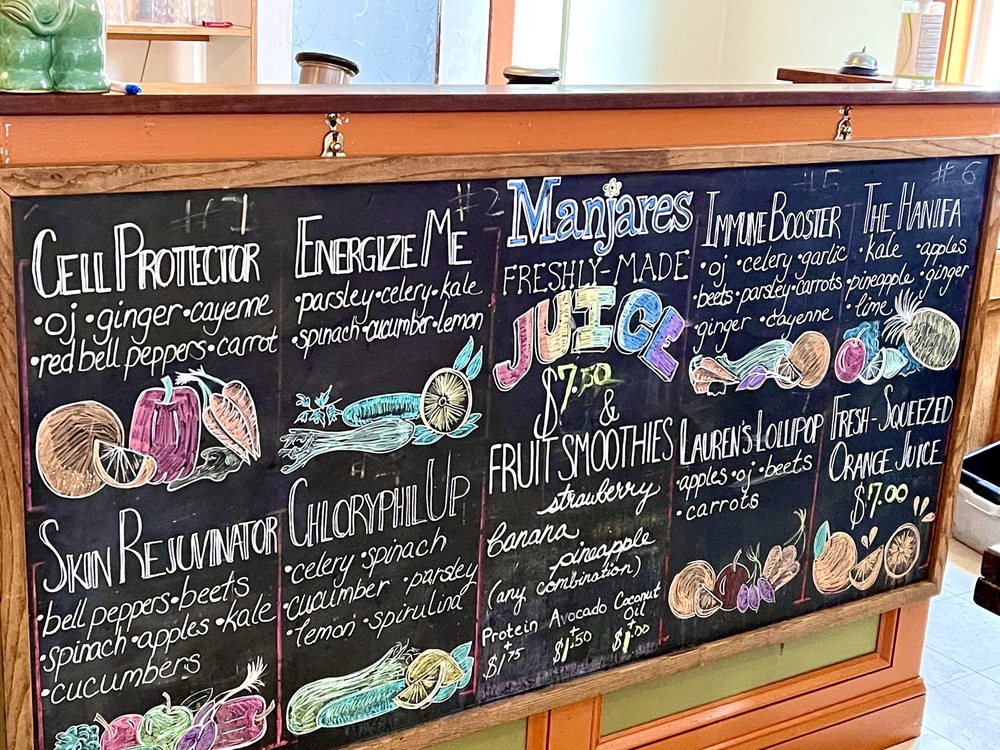 #1
CELL PROTTECTOR
•oj •ginger •cayenne
•red bell peppers •carrot
SKIN REJUVINATOR
•bell peppers •beets
•spinach •apples •kale
•cucumbers
#2
ENERGIZE ME
•parsley •celery •kale
•spinach •cucumber •lemon
CHLORYPHIL UP
•celery •spinach
•cucumber •parsley
•lemon •spirulina
Manjares
FRESHLY-MADE
JUICE
$7.50
&
FRUIT SMOOTHIES
strawberry
banana
pineapple
(any combination)
Protein Avocado Coconut Oil
+ $1.75 + $1.50 + $1.00
#5
IMMUNE BOOSTER
•oj •celery •garlic
•beets •parsley •carrots
ginger •cayenne
LAUREN'S LOLLIPOP
apples •oj •beets
•carrots
#6
THE HANIFA
•kale •apples
•pineapple •ginger
•lime
FRESH-SQUEEZED
ORANGE JUICE
$7.00